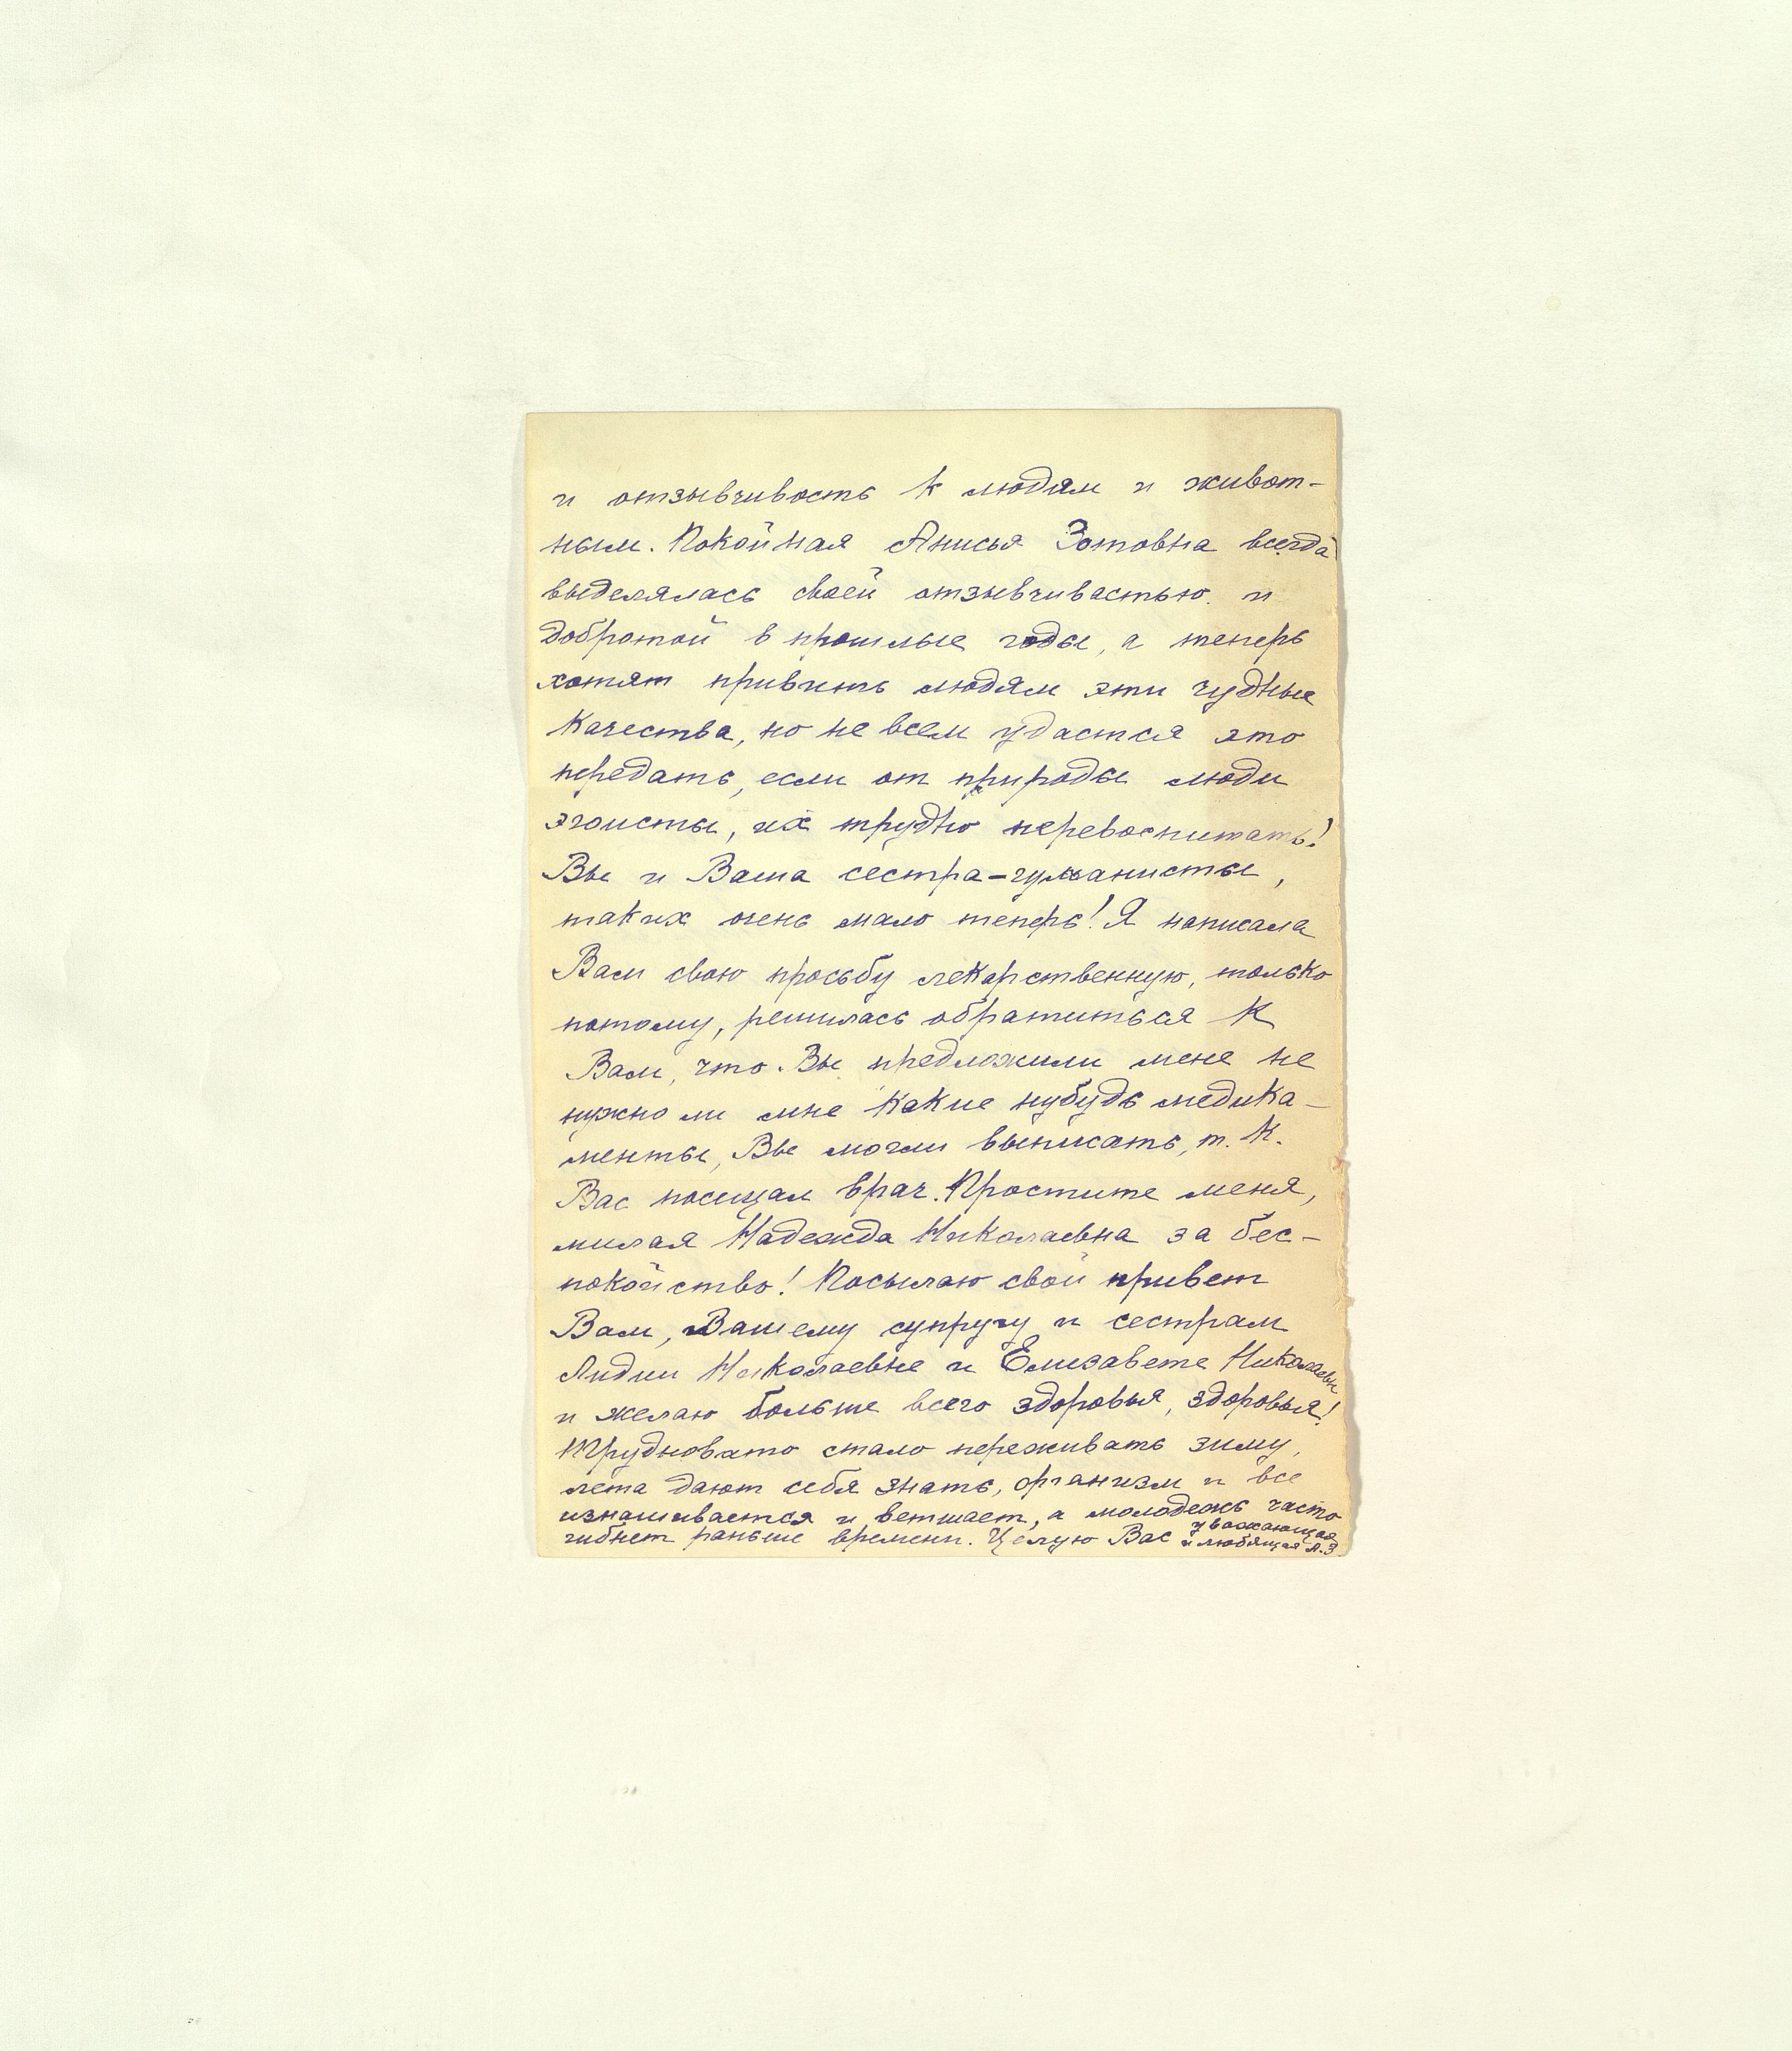 и отзывчивость к людям и живот-
ным. Покойная Анисья Зотовна всегда
выделялась своей отзывчивостью и
добротой в прошлые годы, а теперь
хотят привить людям эти чудные
качества, но не всем удастся это
передать, если от природы люди
эгоисты, их трудно перевоспитать!
Вы и Ваша сестра-гуманисты,
таких очень мало теперь! Я написала
Вам свою просьбу лекарственную, только
потому, решилась обратиться к
Вам, что Вы предложили мене не
нужно ли мне какие нубудь медика-
менты, Вы могли выписать, т.к.
Вас посещал врач. Простите меня,
милая Надежда Николаевна за бес-
покойство! Посылаю свой привет
Вам, Вашему супругу и сестрам
Лидии Николаевне и Елизавете Николаевн
и желаю больше всего здоровья, здоровья!
Трудновато стало переживать зиму,
лета дают себя знать, организм и все
изнашивается и ветшает, а молодежь часто
гибнет раньше времени. Целую Вас уважающая
и любящая А.З